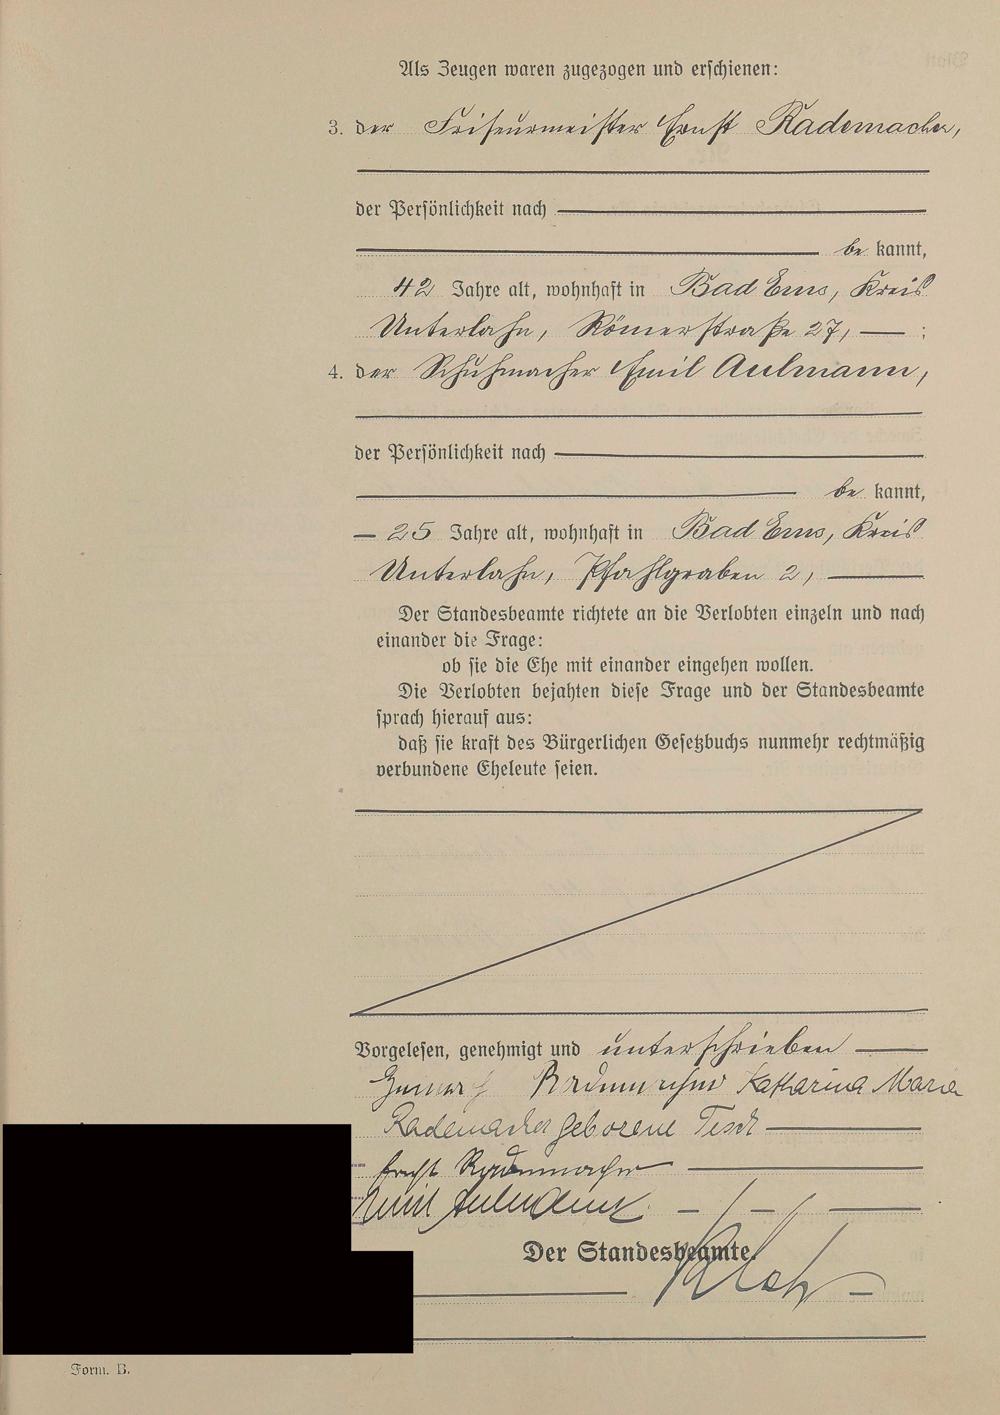 Als Zeugen waren zugezogen und erschienen:
3. der Friseurmeister Ernst Rademacher,
der Persönlichkeit nach
be kannt,
42 Jahre alt, wohnhaft in Bad Ems, Kreis
Unterlahn, Römerstraße 27, — ;
4. der Schuhmacher Emil Aulmann,
der Persönlichkeit nach
be kannt,
— 25 Jahre alt, wohnhaft in Bad Ems, Kreis
Unterlahn, Pfahlgraben 2, —
Der Standesbeamte richtete an die Verlobten einzeln und nach
einander die Frage:
ob sie die Ehe mit einander eingehen wollen.
Die Verlobten bejahten diese Frage und der Standesbeamte
sprach hierauf aus:
daß sie kraft des Bürgerlichen Gesetzbuchs nunmehr rechtmäßig
verbundene Eheleute seien.
Vorgelesen, genehmigt und unterschrieben —
Rademacher Katharina Maria
Rademacher geborene Tesch —
Ernst Rademacher —
Emil Aulmann — — —
Der Standesbeamte.
Form. B.